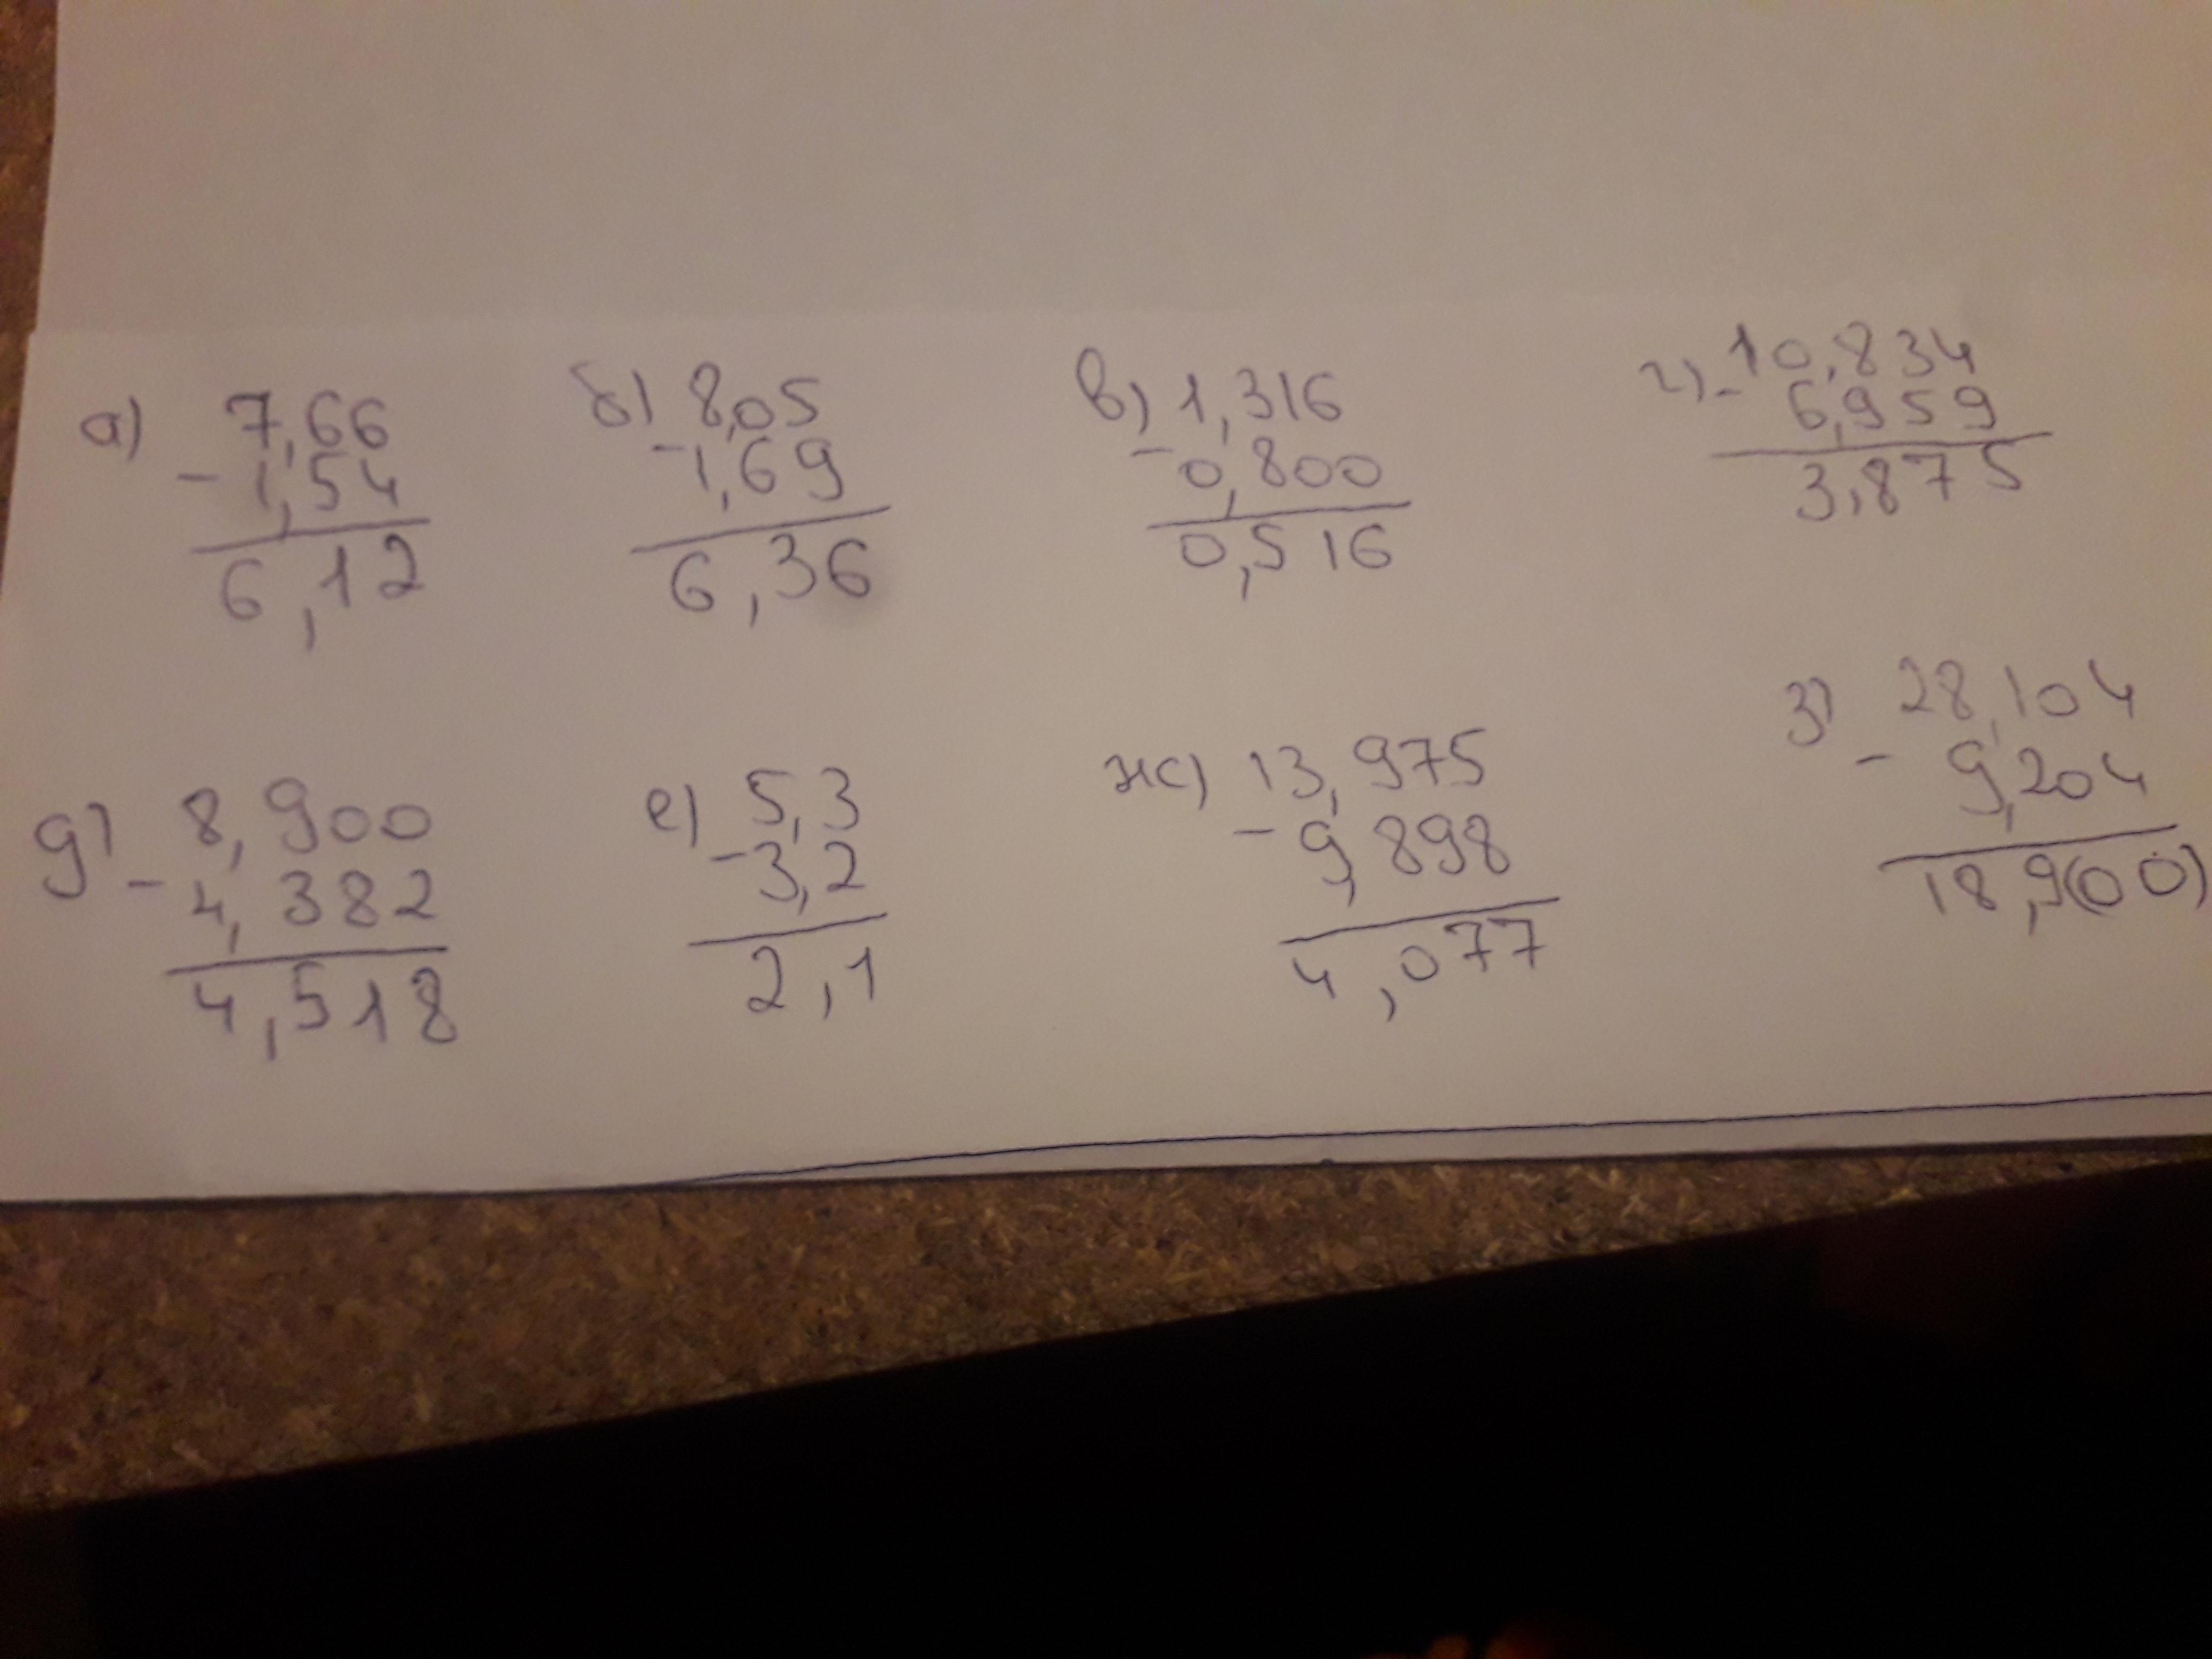 а) 7,66
- 1,54
6,12
б) 8,05
- 1,69
6,36
в) 1,316
- 0,800
0,516
г) - 10,834
6,959
3,875
д) 8,900
- 4,382
4,518
е) 5,3
- 3,2
2,1
ж) 13,975
- 9,898
4,077
з) 28,104
- 9,204
18,9(00)